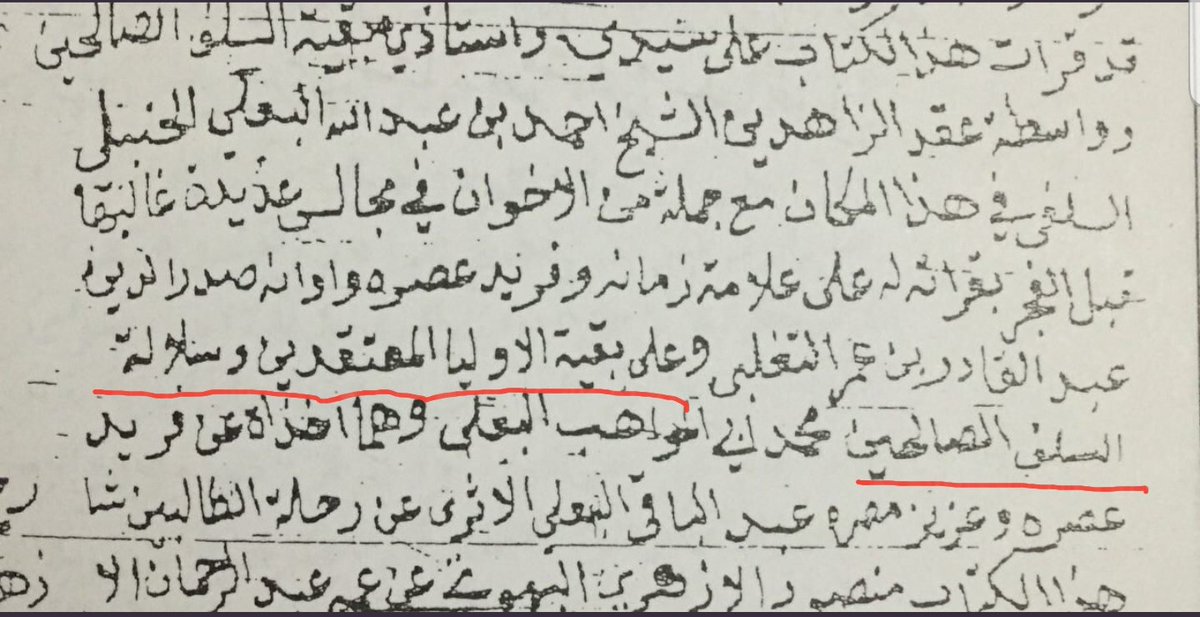 قد قرات هذا الكتاب على سيدي واستاذي بقية السلف الصالحين
وواسطة عقد الزاهدين الشيخ احمد بن عبد الله البعلي الحنبلي
السلفي في هذا المكان مع جملة من الاخوان في مجالس عديدة غالبها
قبل الفجر بقرائته له على علامة زمانه وفريد عصره واوانه صدر الدين
عبد القادر بن عمر التغلبي وعلى بقية الاوليا المعتقدين وسلالة
السلف الصالحين محمد ابي المواهب البعلي وهما اخذاه عن فريد
عصره وعزيز مصره عبد الباقي البعلي الاثري عن رحلة الطالبين شا
هذا الكتاب منصور الازهري البهوتي عن عبد الرحمان الا